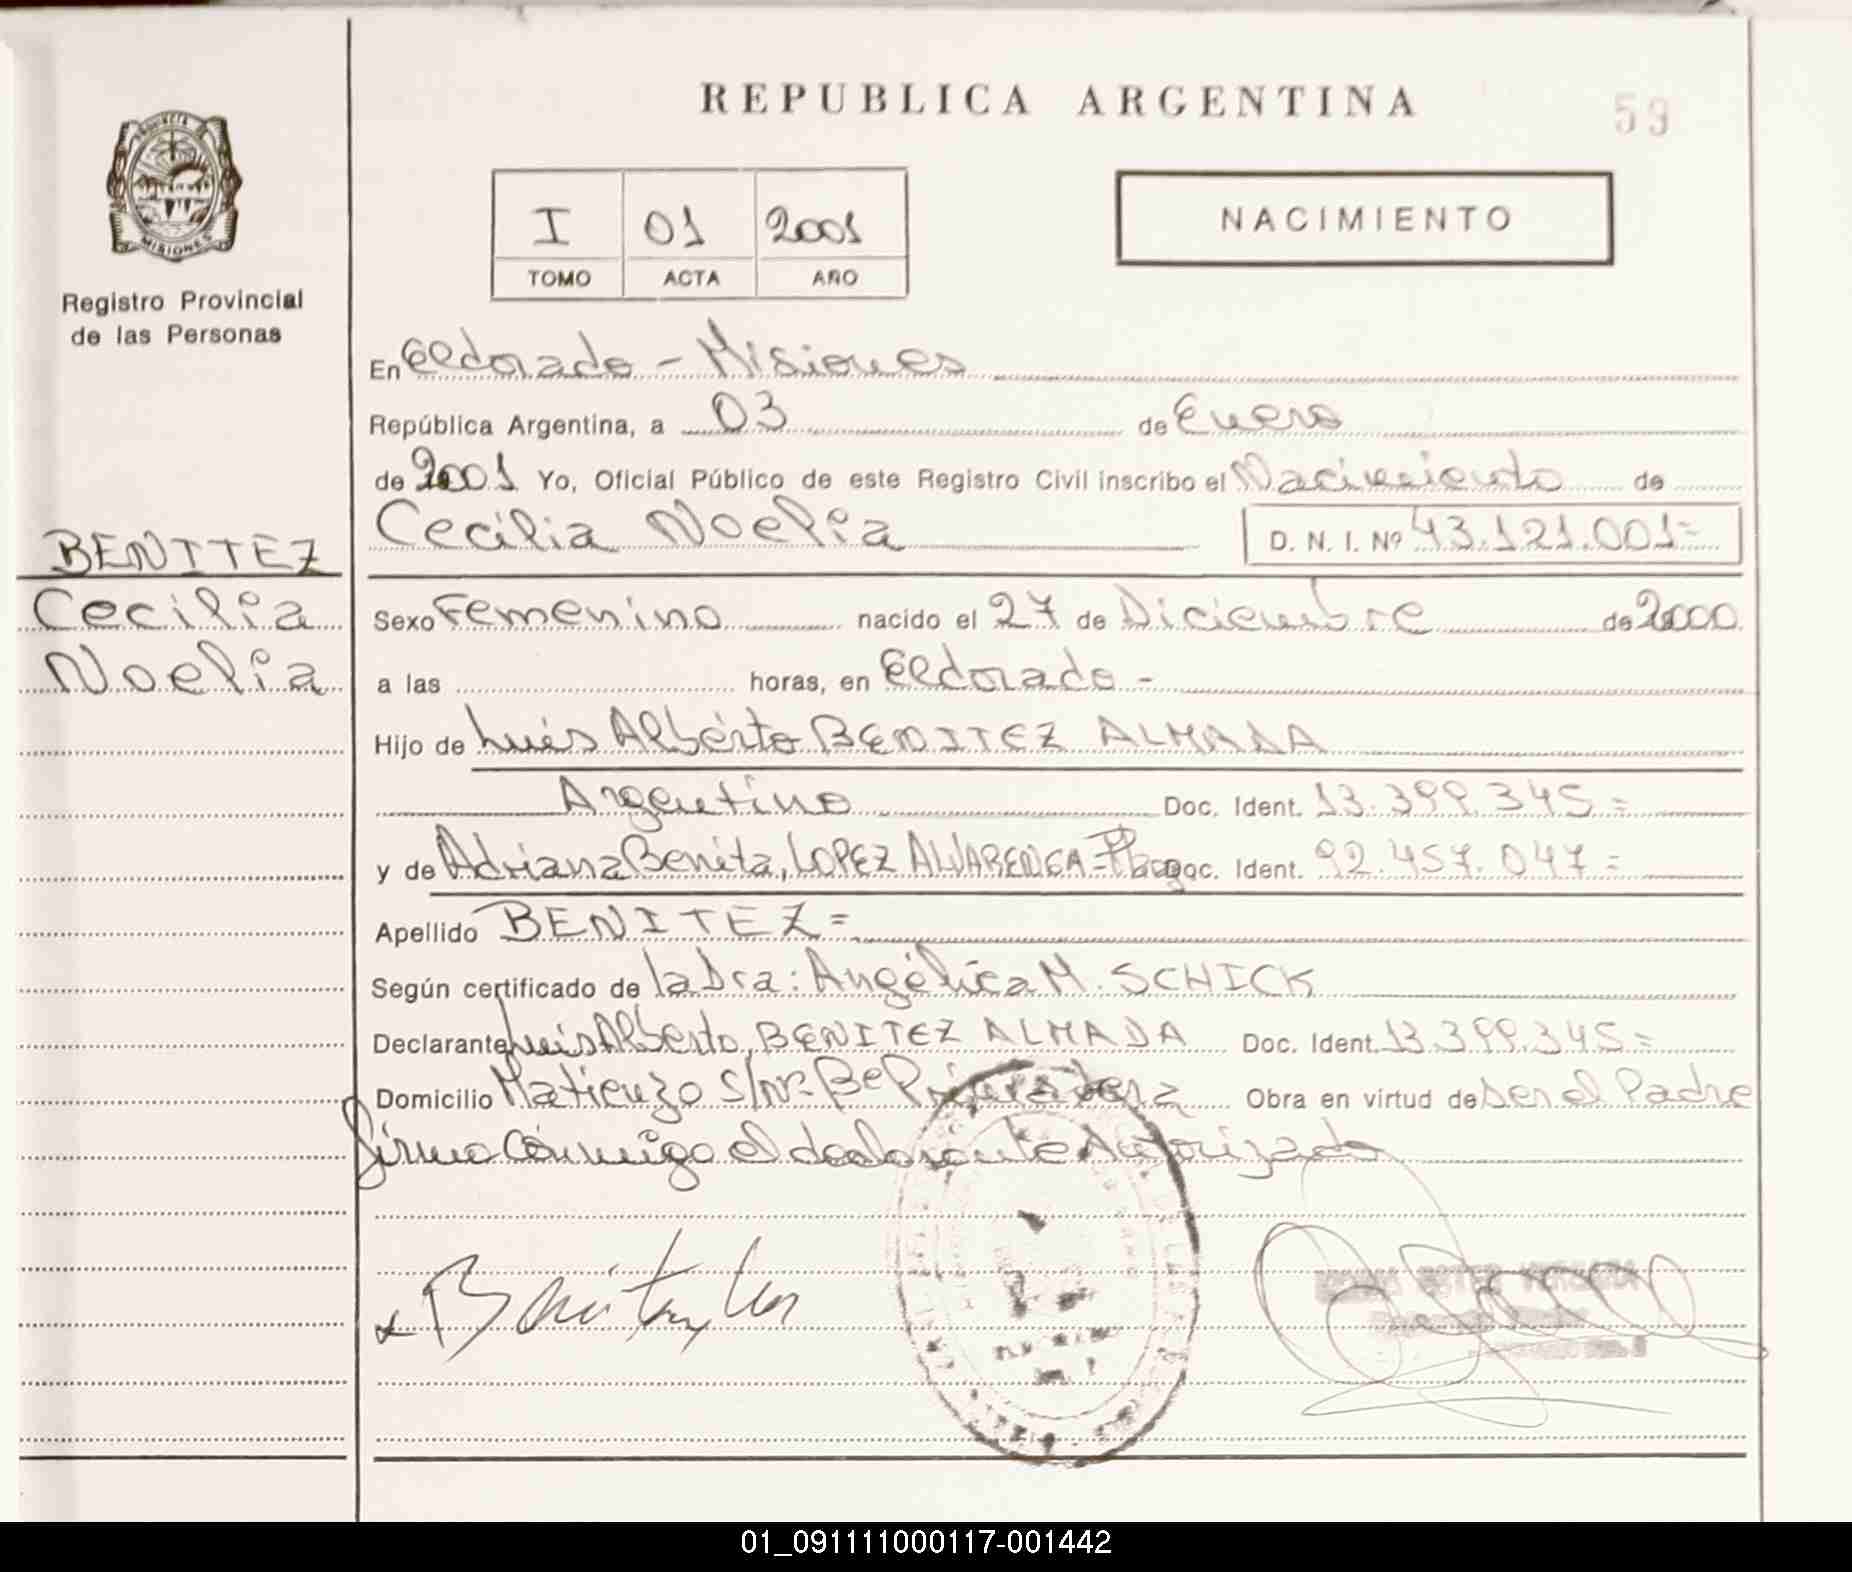 REPUBLICA ARGENTINA
59
PROVINCIA DE
MISIONES
Registro Provincial
de las Personas
I 01 2001
TOMO ACTA AÑO
NACIMIENTO
En Eldorado - Misiones
República Argentina, a 03 de Enero
de 2001 Yo, Oficial Público de este Registro Civil inscribo el Nacimiento de
Cecilia Noelia D. N. I. Nº 43.121.001=
BENITEZ
Cecilia
Noelia
Sexo Femenino nacido el 27 de Diciembre de 2000
a las horas, en Eldorado -
Hijo de Luis Alberto BENITEZ ALMADA
Argentino Doc. Ident. 13.399.345=
y de Adriana Benita, LOPEZ ALVARENGA= Doc. Ident. 92.457.047=
Apellido BENITEZ=
Según certificado de la Dra: Angélica M. SCHICK
Declarante Luis Alberto, BENITEZ ALMADA Doc. Ident. 13.399.345=
Domicilio Matienzo S/nº- Bº Primavera Obra en virtud de ser el Padre
firma conmigo el declarante Autorizado
01_091111000117-001442